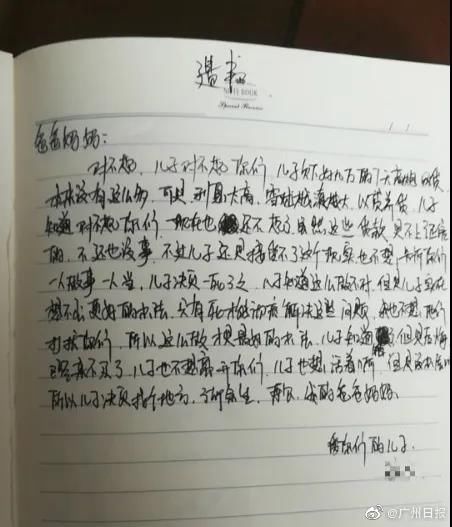 遗书
NOTE BOOK
爸爸妈妈:
对不起,儿子对不起你们,儿子欠下好几万的
本来没有这么多,可是利息太高,窟窿越滚越大,以贷养贷,儿子
知道对不起你们,现在也还不起了虽然这些贷款是不上征信
的,不还也没事,不过儿子还是接受不了这个现实也不想
一人做事一人当,儿子决定一死了之,儿子知道这么做不对,但是儿子实在
想不出更好的办法,只有死才能彻底解决这些问题,我也不想他们
打扰你们,所以这么做才是最好的办法,儿子知道了但是后悔
已经来不及了儿子也不想离开你们,儿子也想活着
所以儿子决定找个地方,了断余生,再见,我的爸爸妈妈
爱你们的儿子
@广州日报